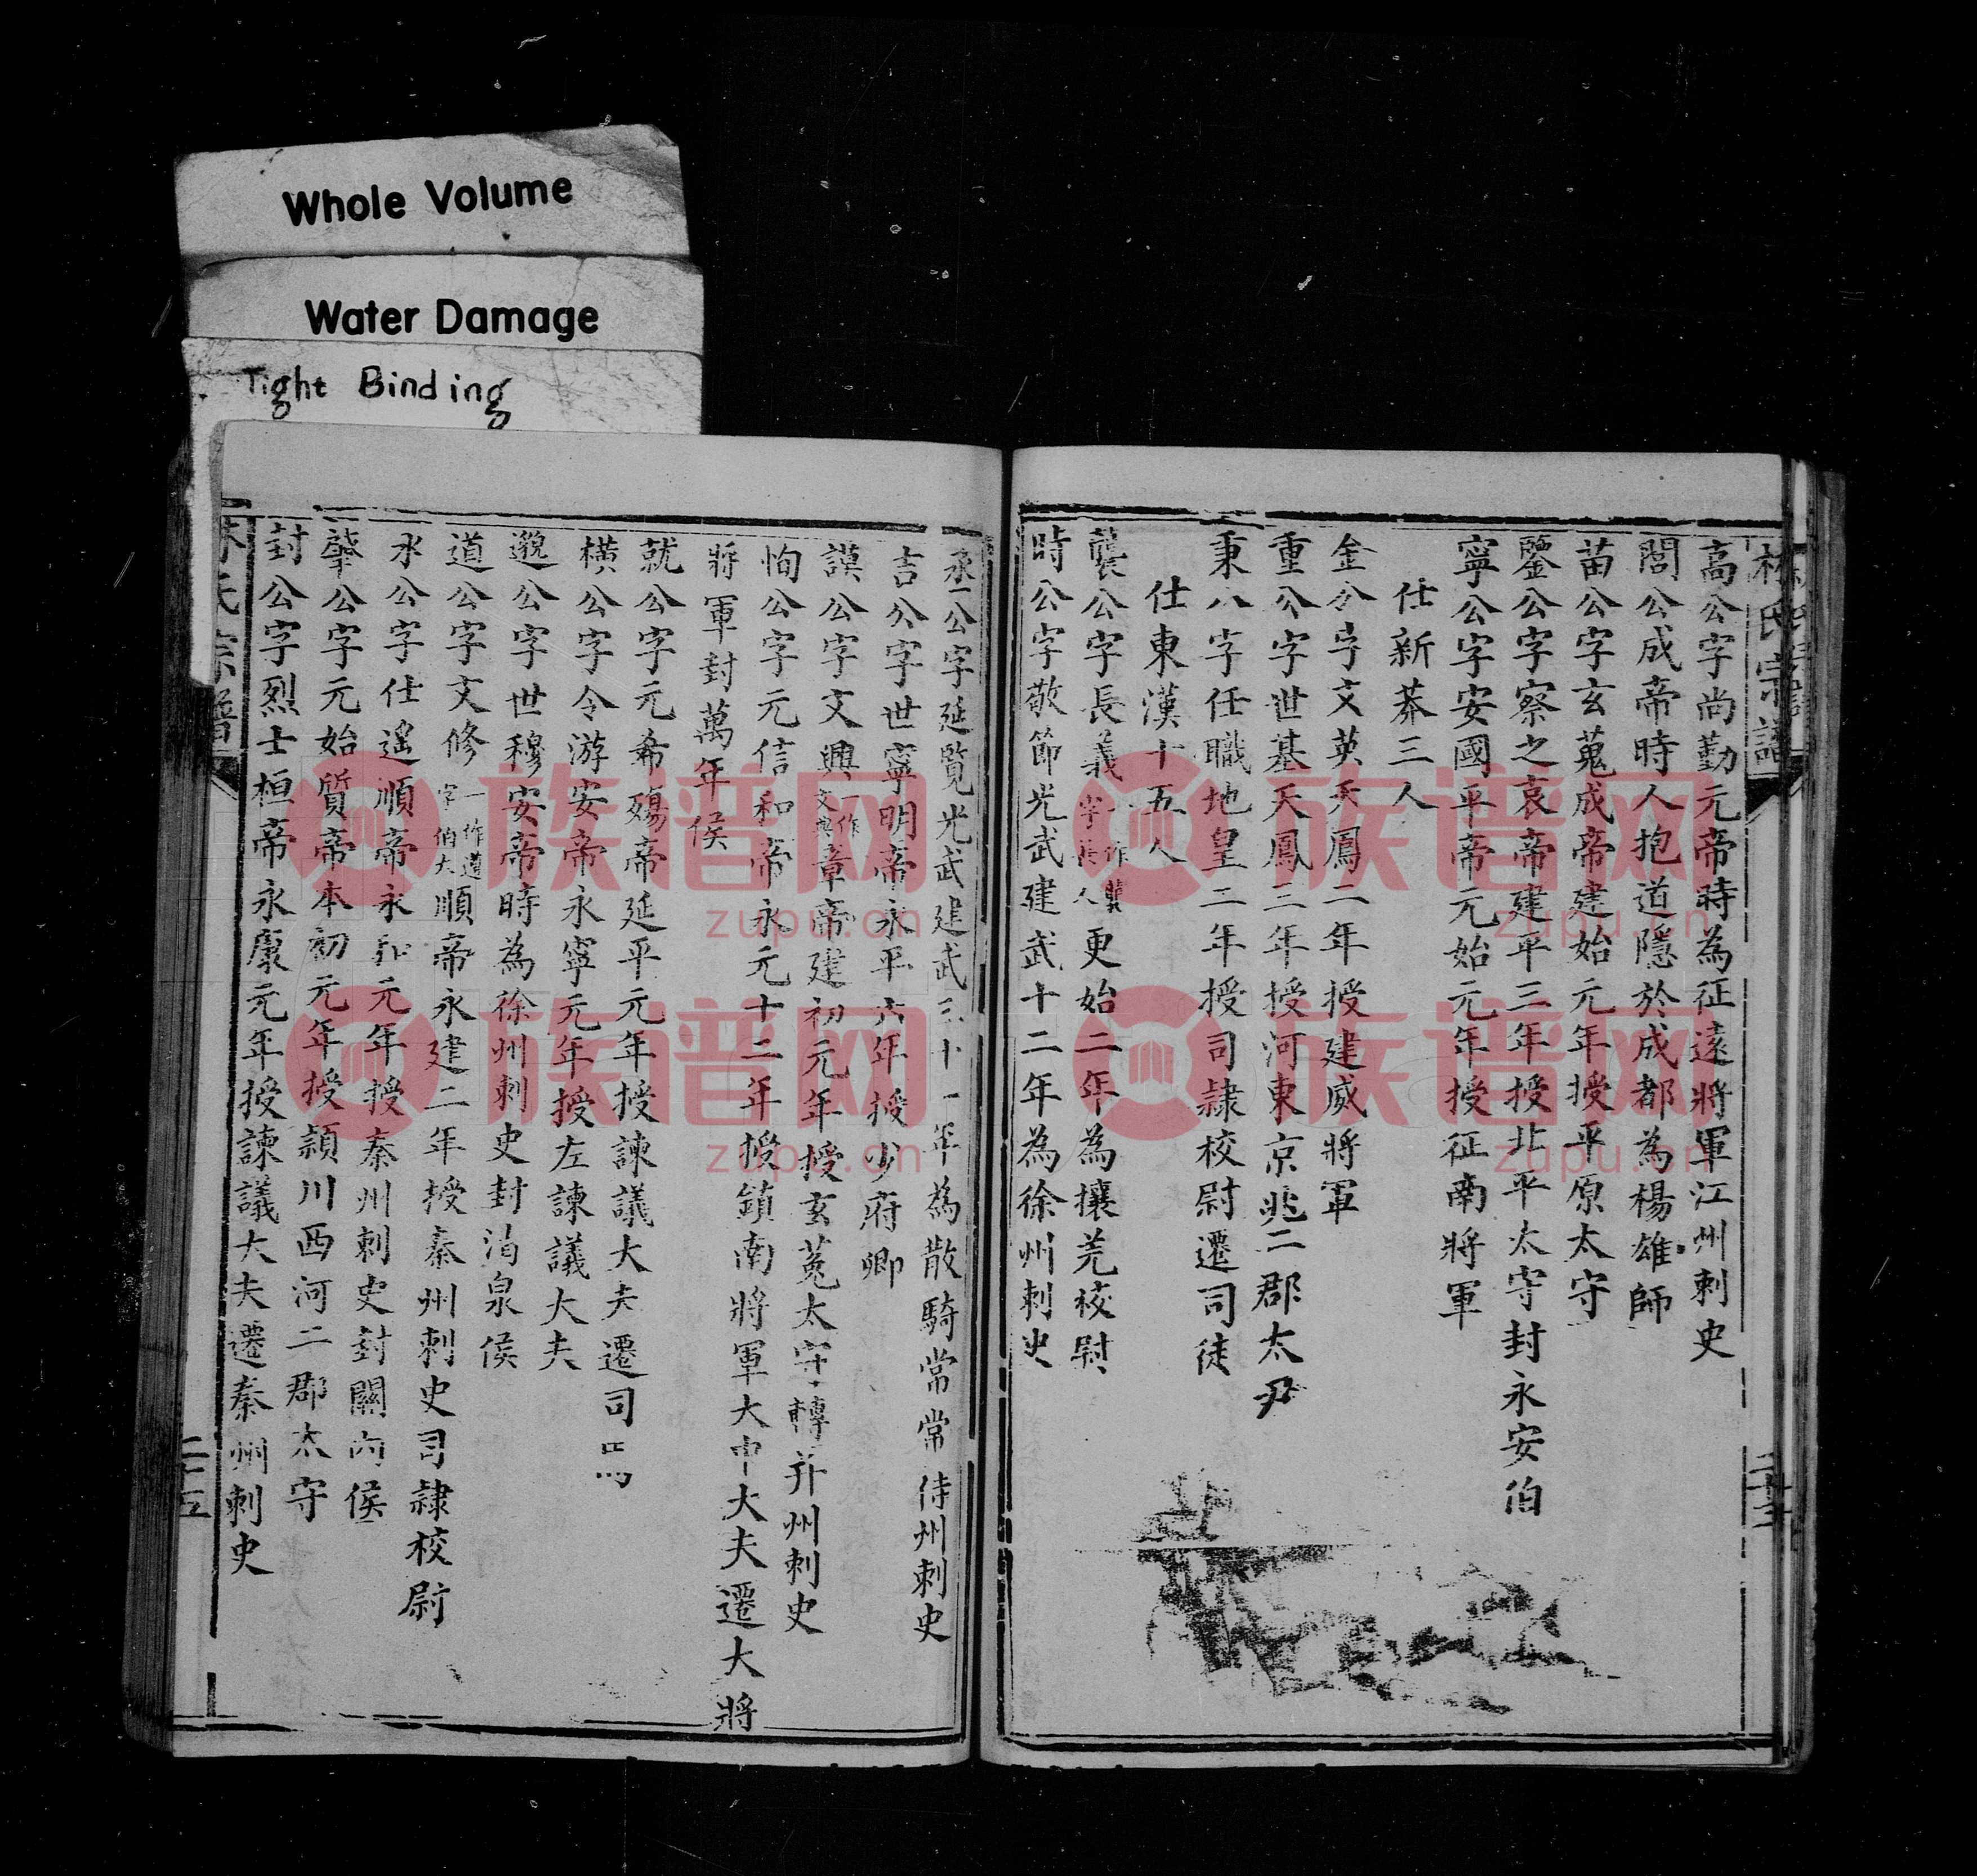 Whole Volume
Water Damage
Tight Binding
林氏宗譜
高公字尚勤元帝時為征遠將軍江州刺史
閭公成帝時人抱道隱於成都為楊雄師
苗公字玄蒐成帝建始元年授平原太守
鑒公字察之哀帝建平三年授北平太守封永安伯
寧公字安國平帝元始元年授征南將軍
仕新莽三人
金公字文英天鳳二年授建威將軍
重公字世基天鳳三年授河東京兆二郡太尹
秉公字任職地皇二年授司隸校尉遷司徒
仕東漢十五人
龔公字長義更始二年為攘羌校尉
時公字敬節光武建武十二年為徐州刺史
丞公字延覽光武建武三十一年為散騎常常侍州刺史
吉公字世寧明帝永平六年授少府卿
謨公字文興一作文典章帝建初元年授玄菟太守轉并州刺史
恂公字元信和帝永元十二年授鎮南將軍大中大夫遷大將
將軍封萬年侯
就公字元希殤帝延平元年授諫議大夫遷司馬
橫公字令游安帝永寧元年授左諫議大夫
邈公字世穆安帝時為徐州刺史封酒泉侯
道公字文修一作遵字伯大順帝永建二年授秦州刺史司隸校尉
永公字仕遙順帝永和元年授秦州刺史封關內侯
肇公字元始質帝本初元年授潁川西河二郡太守
封公字烈士桓帝永康元年授諫議大夫遷秦州刺史
林氏宗譜
二十五
族谱网
zupu.cn
族谱网
zupu.cn
族谱网
zupu.cn
族谱网
zupu.cn